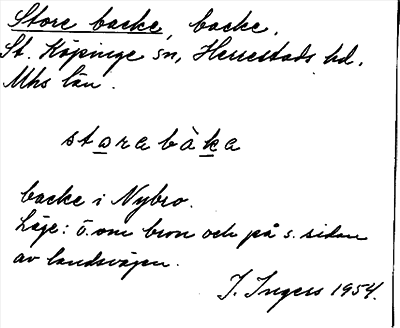 Store backe, backe.
St. Köpinge sn, Herrestads hd.
Mhs län.
stora bàka
backe i Nybro.
Läge: ö. om bron och på s. sidan
av landsvägen.
I. Ingers 1954.